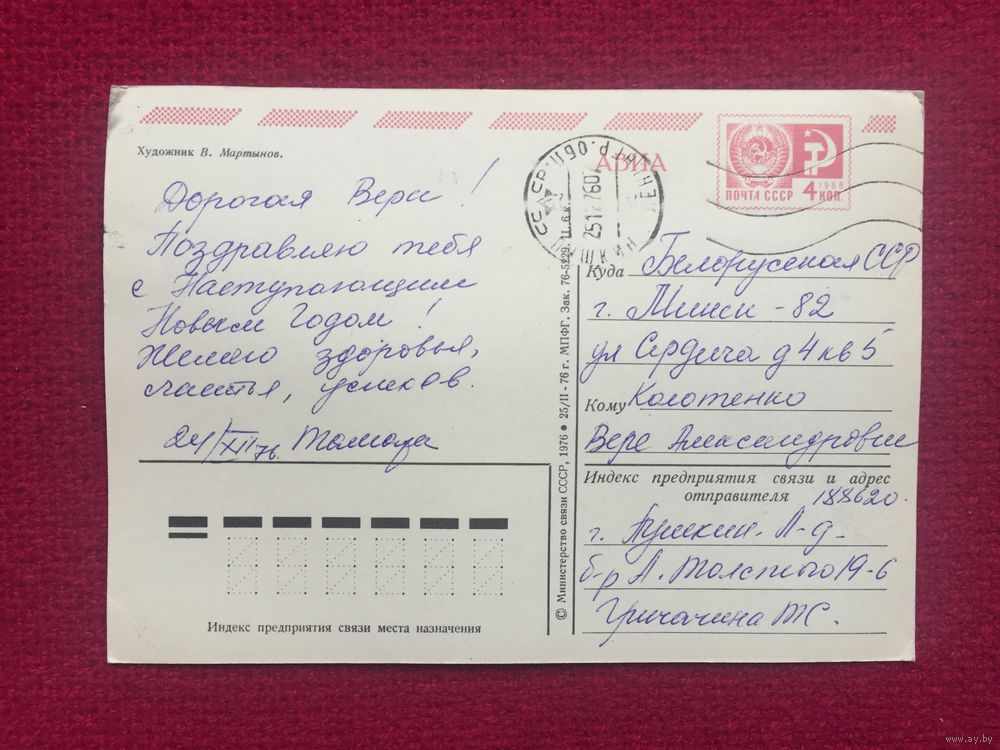 Художник В. Мартынов.
Дорогая Вера!
Поздравляю тебя
с Наступающим
Новым Годом!
Желаю здоровья,
счастья, успехов.
24/XII 76. Тамара
Индекс предприятия связи места назначения
© Министерство связи СССР, 1976 ● 25/II - 76 г. МПФГ. Зак. 76-5229. Ц. 6 к.
АВИА
ПУШКИН ЛЕНИНГР. ОБЛ.
СССР
251276
1966
ПОЧТА СССР 4 КОП.
Куда Белорусская ССР
г. Минск - 82
ул Сердича д 4 кв 5
Кому Колотенко
Вере Александровне
Индекс предприятия связи и адрес
отправителя 188620.
г. Пушкин. Л-д-
б-р А. Толстого 19-6
Гричачина ТС.
www.ay.by